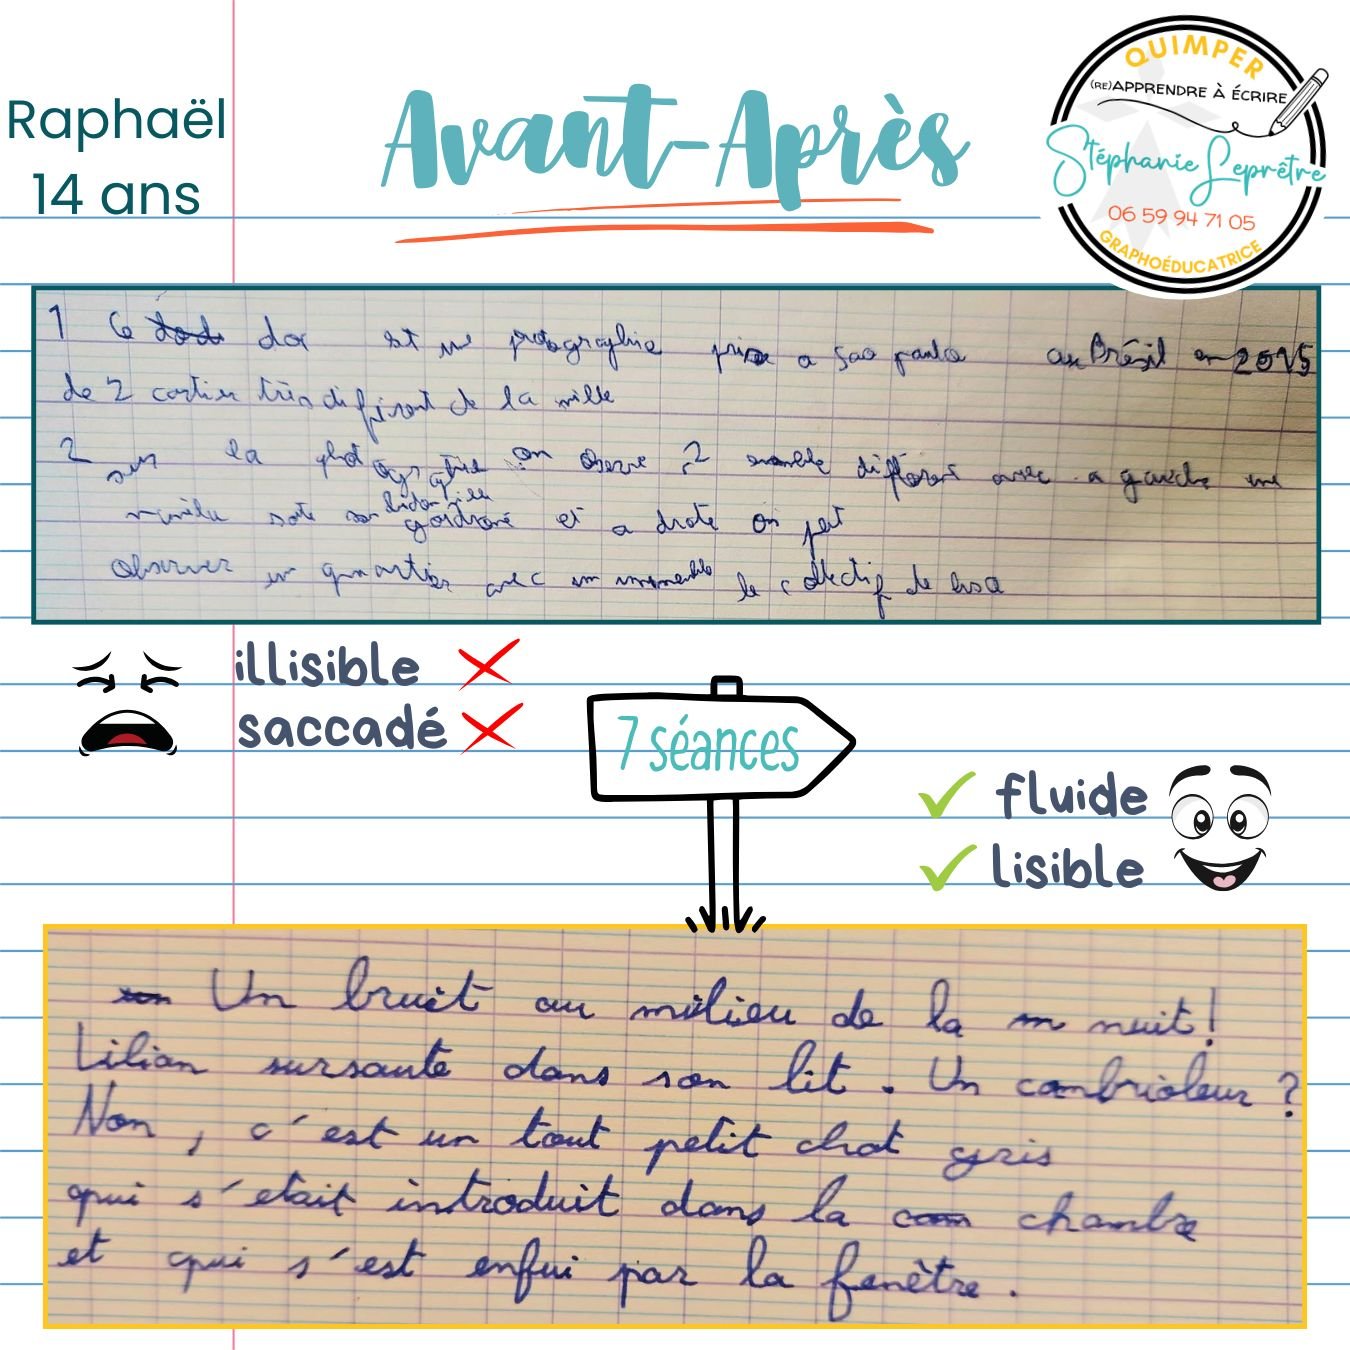 Raphaël
14 ans
Avant-Après
QUIMPER
(RE)APPRENDRE À ÉCRIRE
Stéphanie Leprêtre
06 59 94 71 05
GRAPHOÉDUCATRICE
1 Ce doc est une photographie prise a Sao paulo au Brésil en 2015
de 2 cartier très difirent de la ville
2 sur la photographie on observe 2 différent avec a gauche une
et a droite on pet
observer un quartier avec un immeuble le collectif de
illisible
saccadé
7 séances
fluide
lisible
Un bruit au milieu de la nuit !
Lilian sursaute dans son lit . Un cambrioleur ?
Non , c'est un tout petit chat gris
qui s'etait introduit dans la chambre
et qui s'est enfui par la fenêtre .